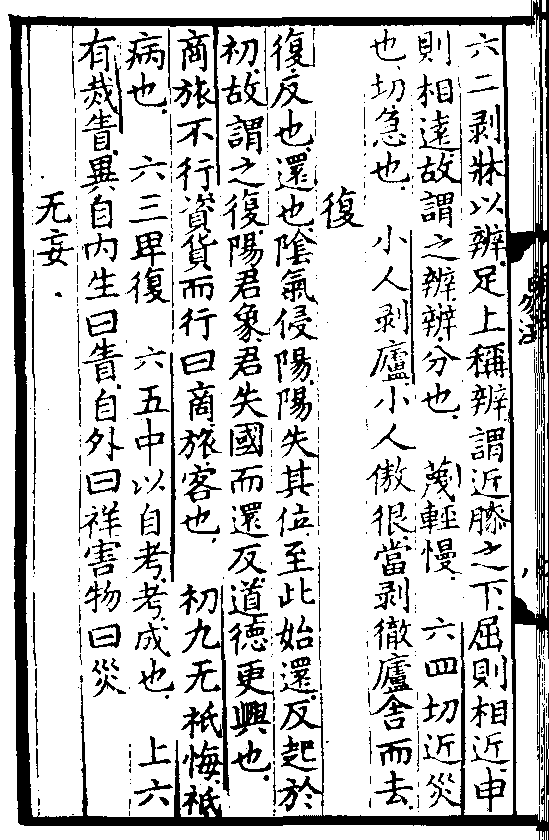 六二剥牀以辨足上稱辨謂近膝之下屈則相近申
則相遠故謂之辨辨分也 蔑輕慢 六四切近災
也切急也 小人剥廬小人傲很當剥徹廬舍而去
復
復反也還也陰氣侵陽陽失其位至此始還反起於
初故謂之復陽君象君失國而還反道德更興也
商旅不行資貨而行曰商旅客也 初九无祇悔祇
病也 六三卑復 六五中以自考考成也 上六
有烖眚異自內生曰眚自外曰祥害物曰災
无妄